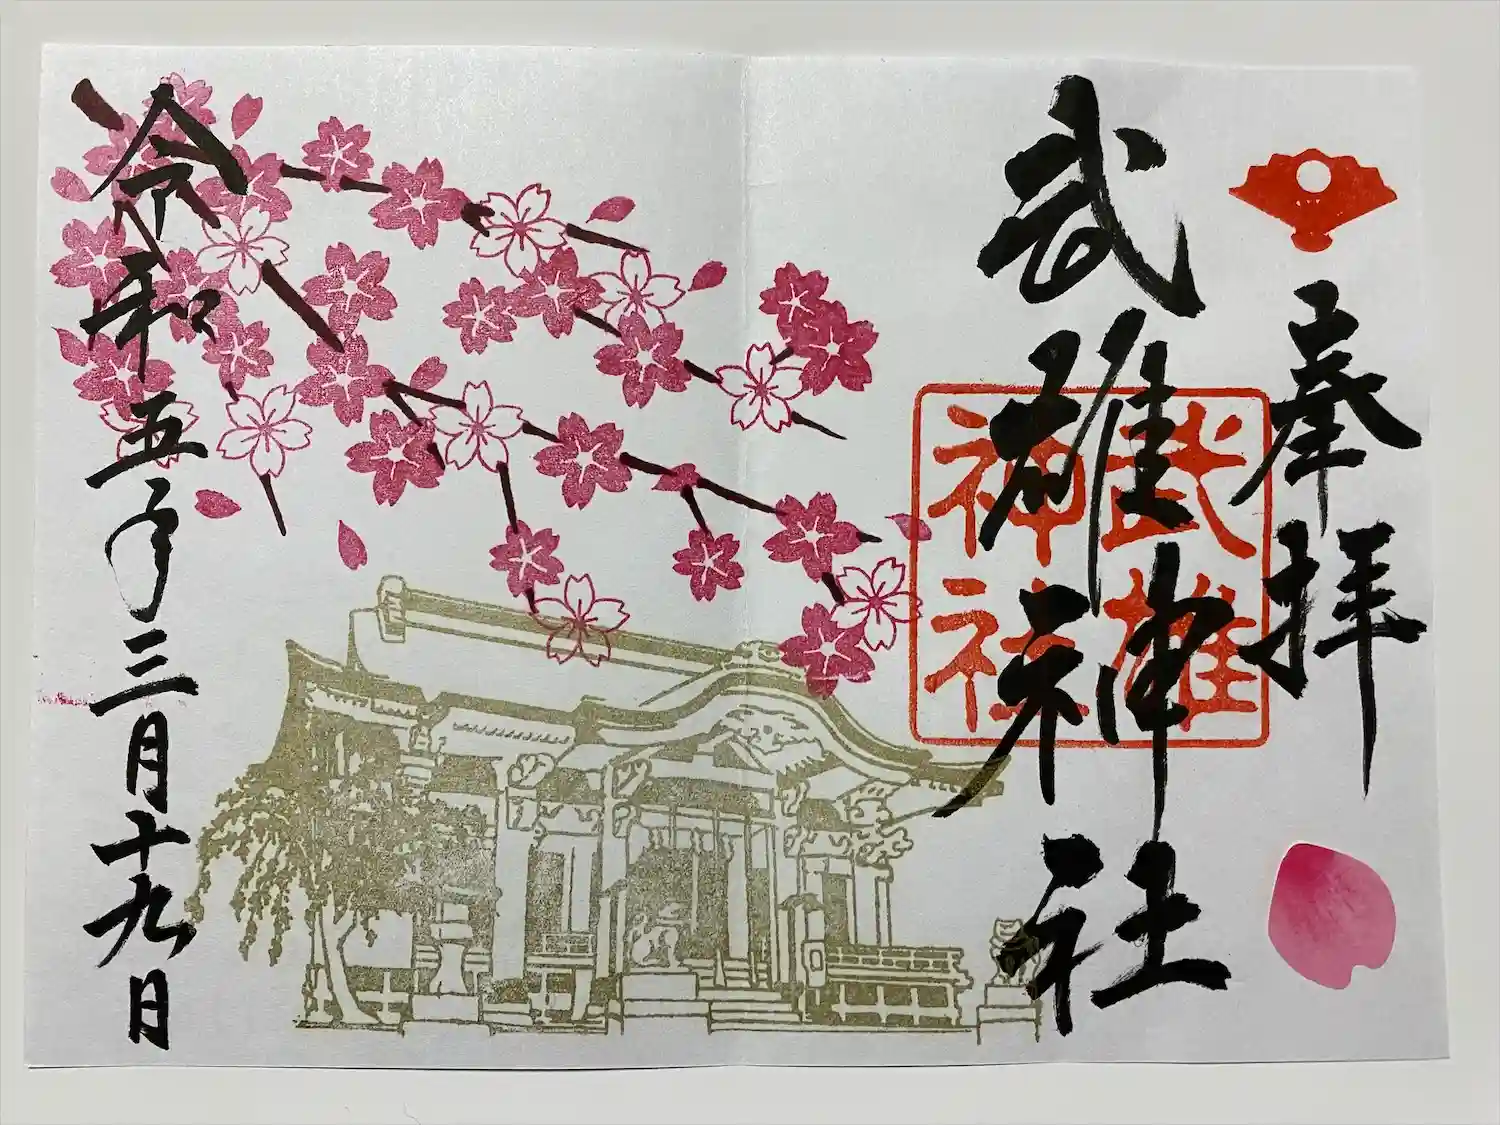 奉拝
武雄神社
武雄
神社
令和五年三月十九日